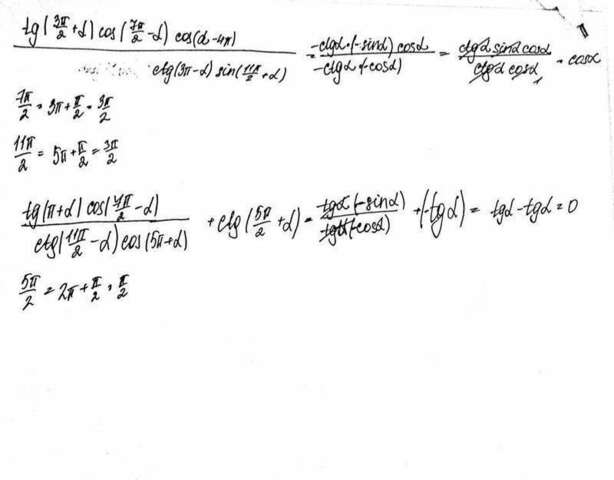 tg(3π/2+α) cos(7π/2-α) cos(α-4π) / ctg(3π-α) sin(11π/2+α) = -ctgα·(-sinα) cosα / -ctgα(-cosα) = ctgα sinα cosα / ctgα cosα =
7π/2 = 3π+π/2 = 3π/2
11π/2 = 5π+π/2 = 3π/2
tg(π+α) cos(7π/2-α) / ctg(11π/2-α) cos(5π+α) + ctg(5π/2+α) = tgα(-sinα) / tgα(-cosα) + (-tgα) = tgα-tgα=0
5π/2 = 2π+π/2 = π/2